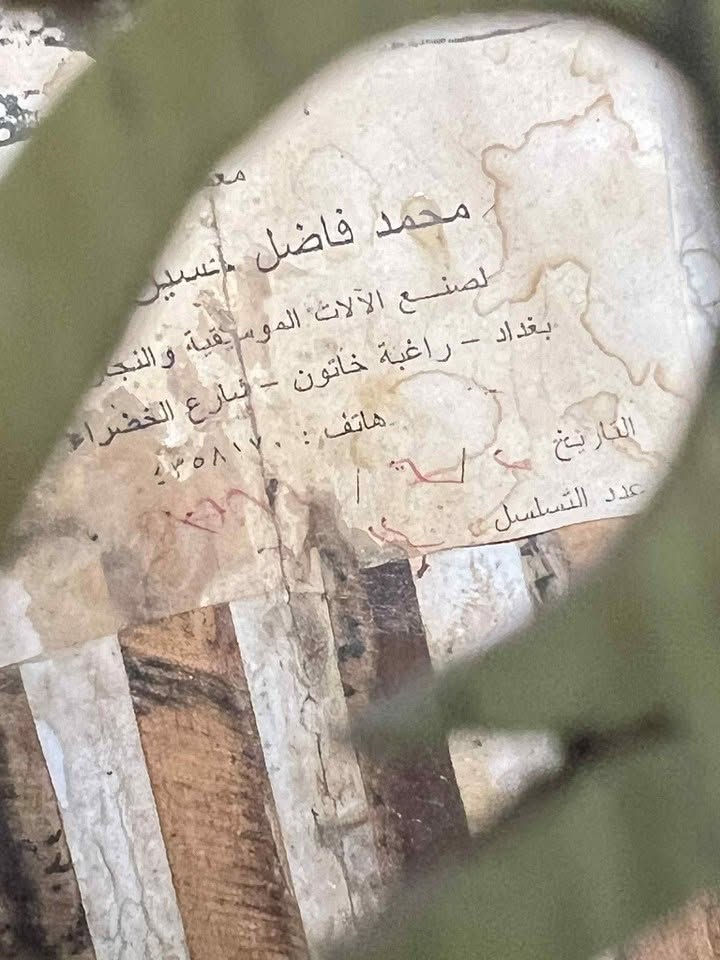 محمد فاضل حسين
لصنع الآلات الموسيقية والنجار
بغداد - راغبة خاتون - شارع الخضراء
هاتف : ٤٣٥٨١٧٠
التاريخ / /
عدد التسلسل